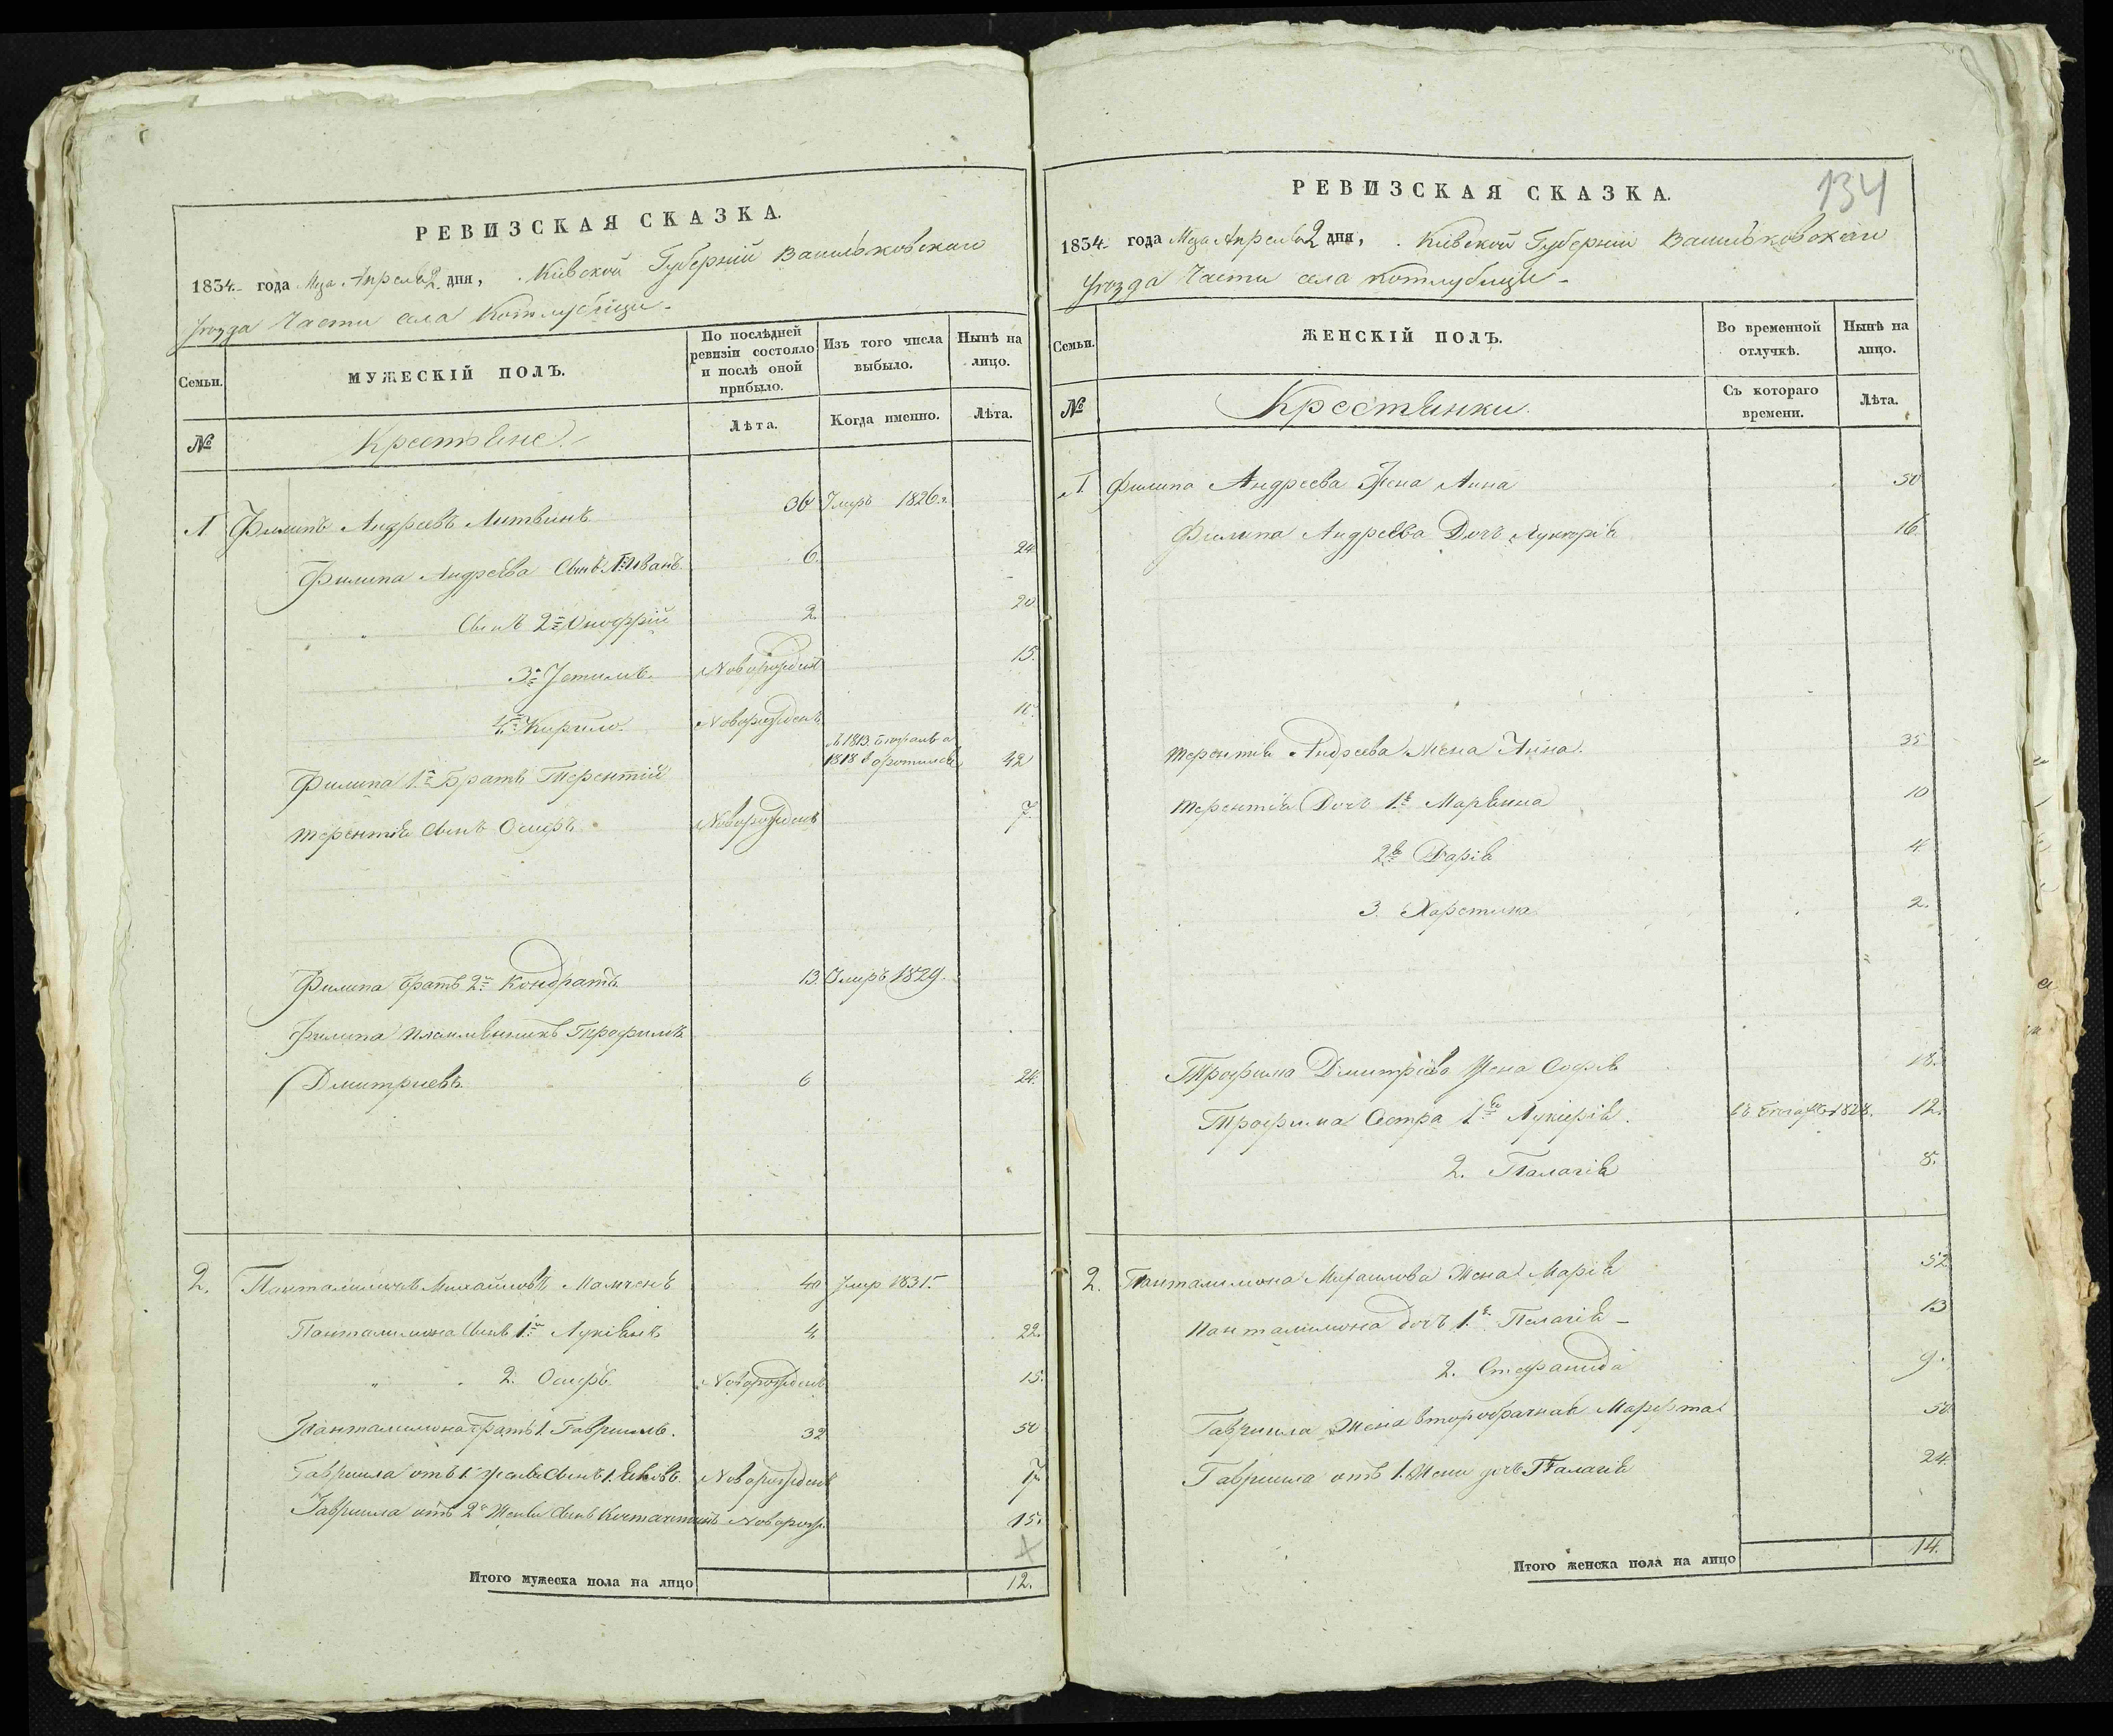 РЕВИЗСКАЯ СКАЗКА.
1834. года Мца Апреля 2 дня, Кіевской Губерніи Васильковскаго
Уѣзда Части села Котлубицы
Семьи.
МУЖЕСКІЙ ПОЛЪ.
По послѣдней ревизіи состояло и послѣ оной прибыло.
Изъ того числа выбыло.
Нынѣ на лицо.
№
Крестьяне
Лѣта.
Когда именно.
Лѣта.
1 Филипъ Андреевъ Литвинъ 36 Умръ 1826
Филипа Андреева Сынъ 1й Иванъ 6. 24
Сынъ 2й Онофрій 2. 20.
3й Устимъ Новорожден 15.
4й Кирило Новорожденъ
Филипа 1й Братъ Терентій 1818 воротился 42
Терентія Сынъ Осипъ Новорожденъ 7
Филипа Братъ 2й Кондратъ 13 Умръ 1829.
Филипа племяникъ Трофимъ
Дмитриевъ 6 24.
2. Панталимонъ Михайловъ 40 Умр 1831.
Панталимона Сынъ 1й Лукіянъ 4 22.
" 2. Осипъ Новорожденъ 15.
Панталимона Братъ 1. Гавриилъ. 32 50
Гавриила отъ 1й жены Сынъ 1. Яковъ Новорожденъ
Гавриила отъ 2й Жены Сынъ Костантинъ Новорож. 15.
Итого мужеска пола на лицо 12.
134
РЕВИЗСКАЯ СКАЗКА.
1834. года Мца Апреля 2 дня, Кіевской Губерніи Васильковскаго
Уѣзда Части села Котлубицы
Семьи.
ЖЕНСКІЙ ПОЛЪ.
Во временной отлучкѣ.
Нынѣ на лицо.
№
Крестьянки.
Съ котораго времени.
Лѣта.
1 Филипа Андреева Жена Анна 50
Филипа Андреева Дочь Лукерія 16.
Терентія Андреева Жена Анна. 35
Терентія Дочь 1я Маріанна 10
2я Дарія 4
3. Харстина 2.
Трофима Дмитріева Жена Софія 18.
Трофима Сестра 1я Лукерія. 1828. 12.
2. Палагія 8.
2. Панталимона Михаилова Жена Марія 52
Панталимона дочь 1я Пелагія 13
2. Стефанида 9.
Гавриила Жена второбрачная Марфта 50.
Гавриила отъ 1. Жены дочь Палагія 24.
Итого женска пола на лицо 14.